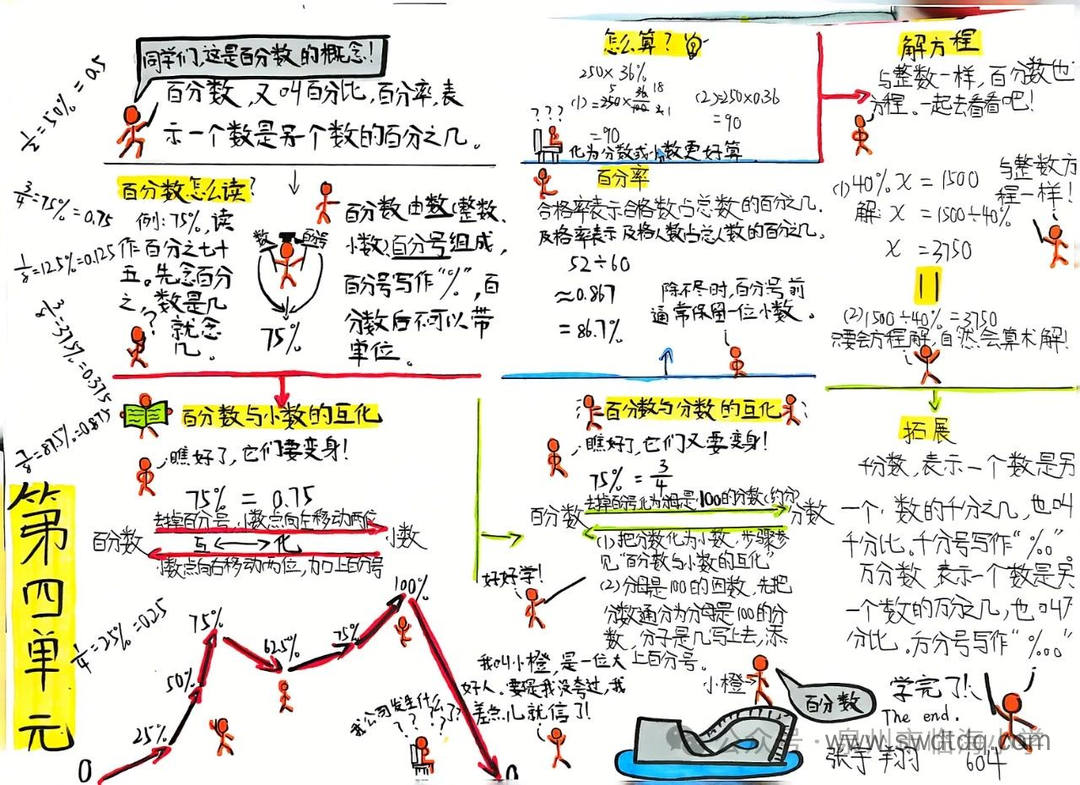 第四单元
1/2=50%=0.5
3/4=75%=0.75
1/8=12.5%=0.125
3/8=37.5%=0.375
7/8=87.5%=0.875
1/4=25%=0.25
同学们,这是百分数的概念!
百分数,又叫百分比,百分率,表
示一个数是另一个数的百分之几。
百分数怎么读?
例:75%,读
作百分之七十
五。先念百分
之,数是几
就念
几。
?
数
百分号
75%
百分数由数(整数、
小数)、百分号组成,
百分号写作“%”,百
分数后不可以带
单位。
怎么算?
250×36%
(1)=250×36/100
5 18
2 1
=90
(2)=250×0.36
=90
???
化为分数或小数更好算
百分率
合格率表示合格数占总数的百分之几.
及格率表示及格人数占总人数的百分之几。
52÷60
≈0.867
=86.7%
除不尽时,百分号前
通常保留一位小数。
解方程
与整数一样,百分数也
方程。一起去看看吧!
(1)40%x=1500
解:x=1500÷40%
x=3750
与整数方
程一样!
(2)1500÷40%=3750
只要会方程解,自然会算术解!
百分数与小数的互化
瞧好了,它们要变身!
75%=0.75
去掉百分号,小数点向左移动两位
百分数
互 化
小数
小数点向右移动两位,加上百分号
百分数与分数的互化
瞧好了,它们又要变身!
75%=3/4
去掉百分号化为分母是100的分数(约分)
百分数
分数
(1)把分数化为小数,步骤参
见“百分数与小数的互化”
(2)分母是100的因数,先把
分数通分为分母是100的分
数,分子是几写上去,添
上百分号。
好好学!
拓展
千分数,表示一个数是另
一个数的千分之几,也叫
千分比。千分号写作“‰”。
万分数 表示一个数是另
一个数的万分之几,也叫万
分比。万分号写作“‱”
0
25%
50%
75%
62.5%
75%
100%
0
我公司发生什么了?
????
我叫小橙,是一位大
好人。要是我没夸过,我
差点儿就信了!
小橙
百分数
学完了!
The end.
张宇翔
604
公众号·泉州市临海小学
www.swdtdq.com